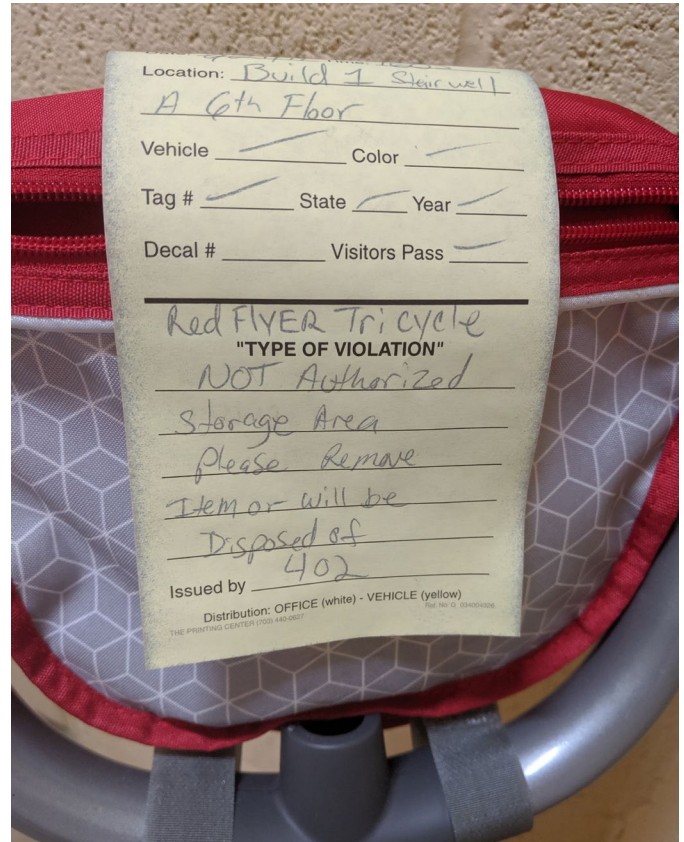 Location: Build 1 Stairwell
A 6th Floor
Vehicle Color
Tag # State Year
Decal # Visitors Pass
Red FlyER Tricycle
"TYPE OF VIOLATION"
NOT Authorized
Storage Area
Please Remove
Item or will be
Disposed of
Issued by 402
Distribution: OFFICE (white) - VEHICLE (yellow)
THE PRINTING CENTER (703) 440-0627